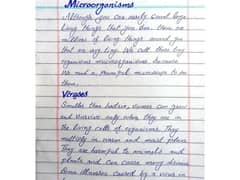 Microorganisms
Although you can easily count large
living things that you see. There are
millions of living things around you
that are very tiny. We call these tiny
organisms microorganisms because
We need a powerful microscope to see
them.
Viruses
Smaller than bacteria, viruses can grow
and survive only when they are in
the living cells of organisms. They
multiply in warm and moist places
They are harmful to animals and
plants and can cause many diseases
Some illnesses caused by a virus in